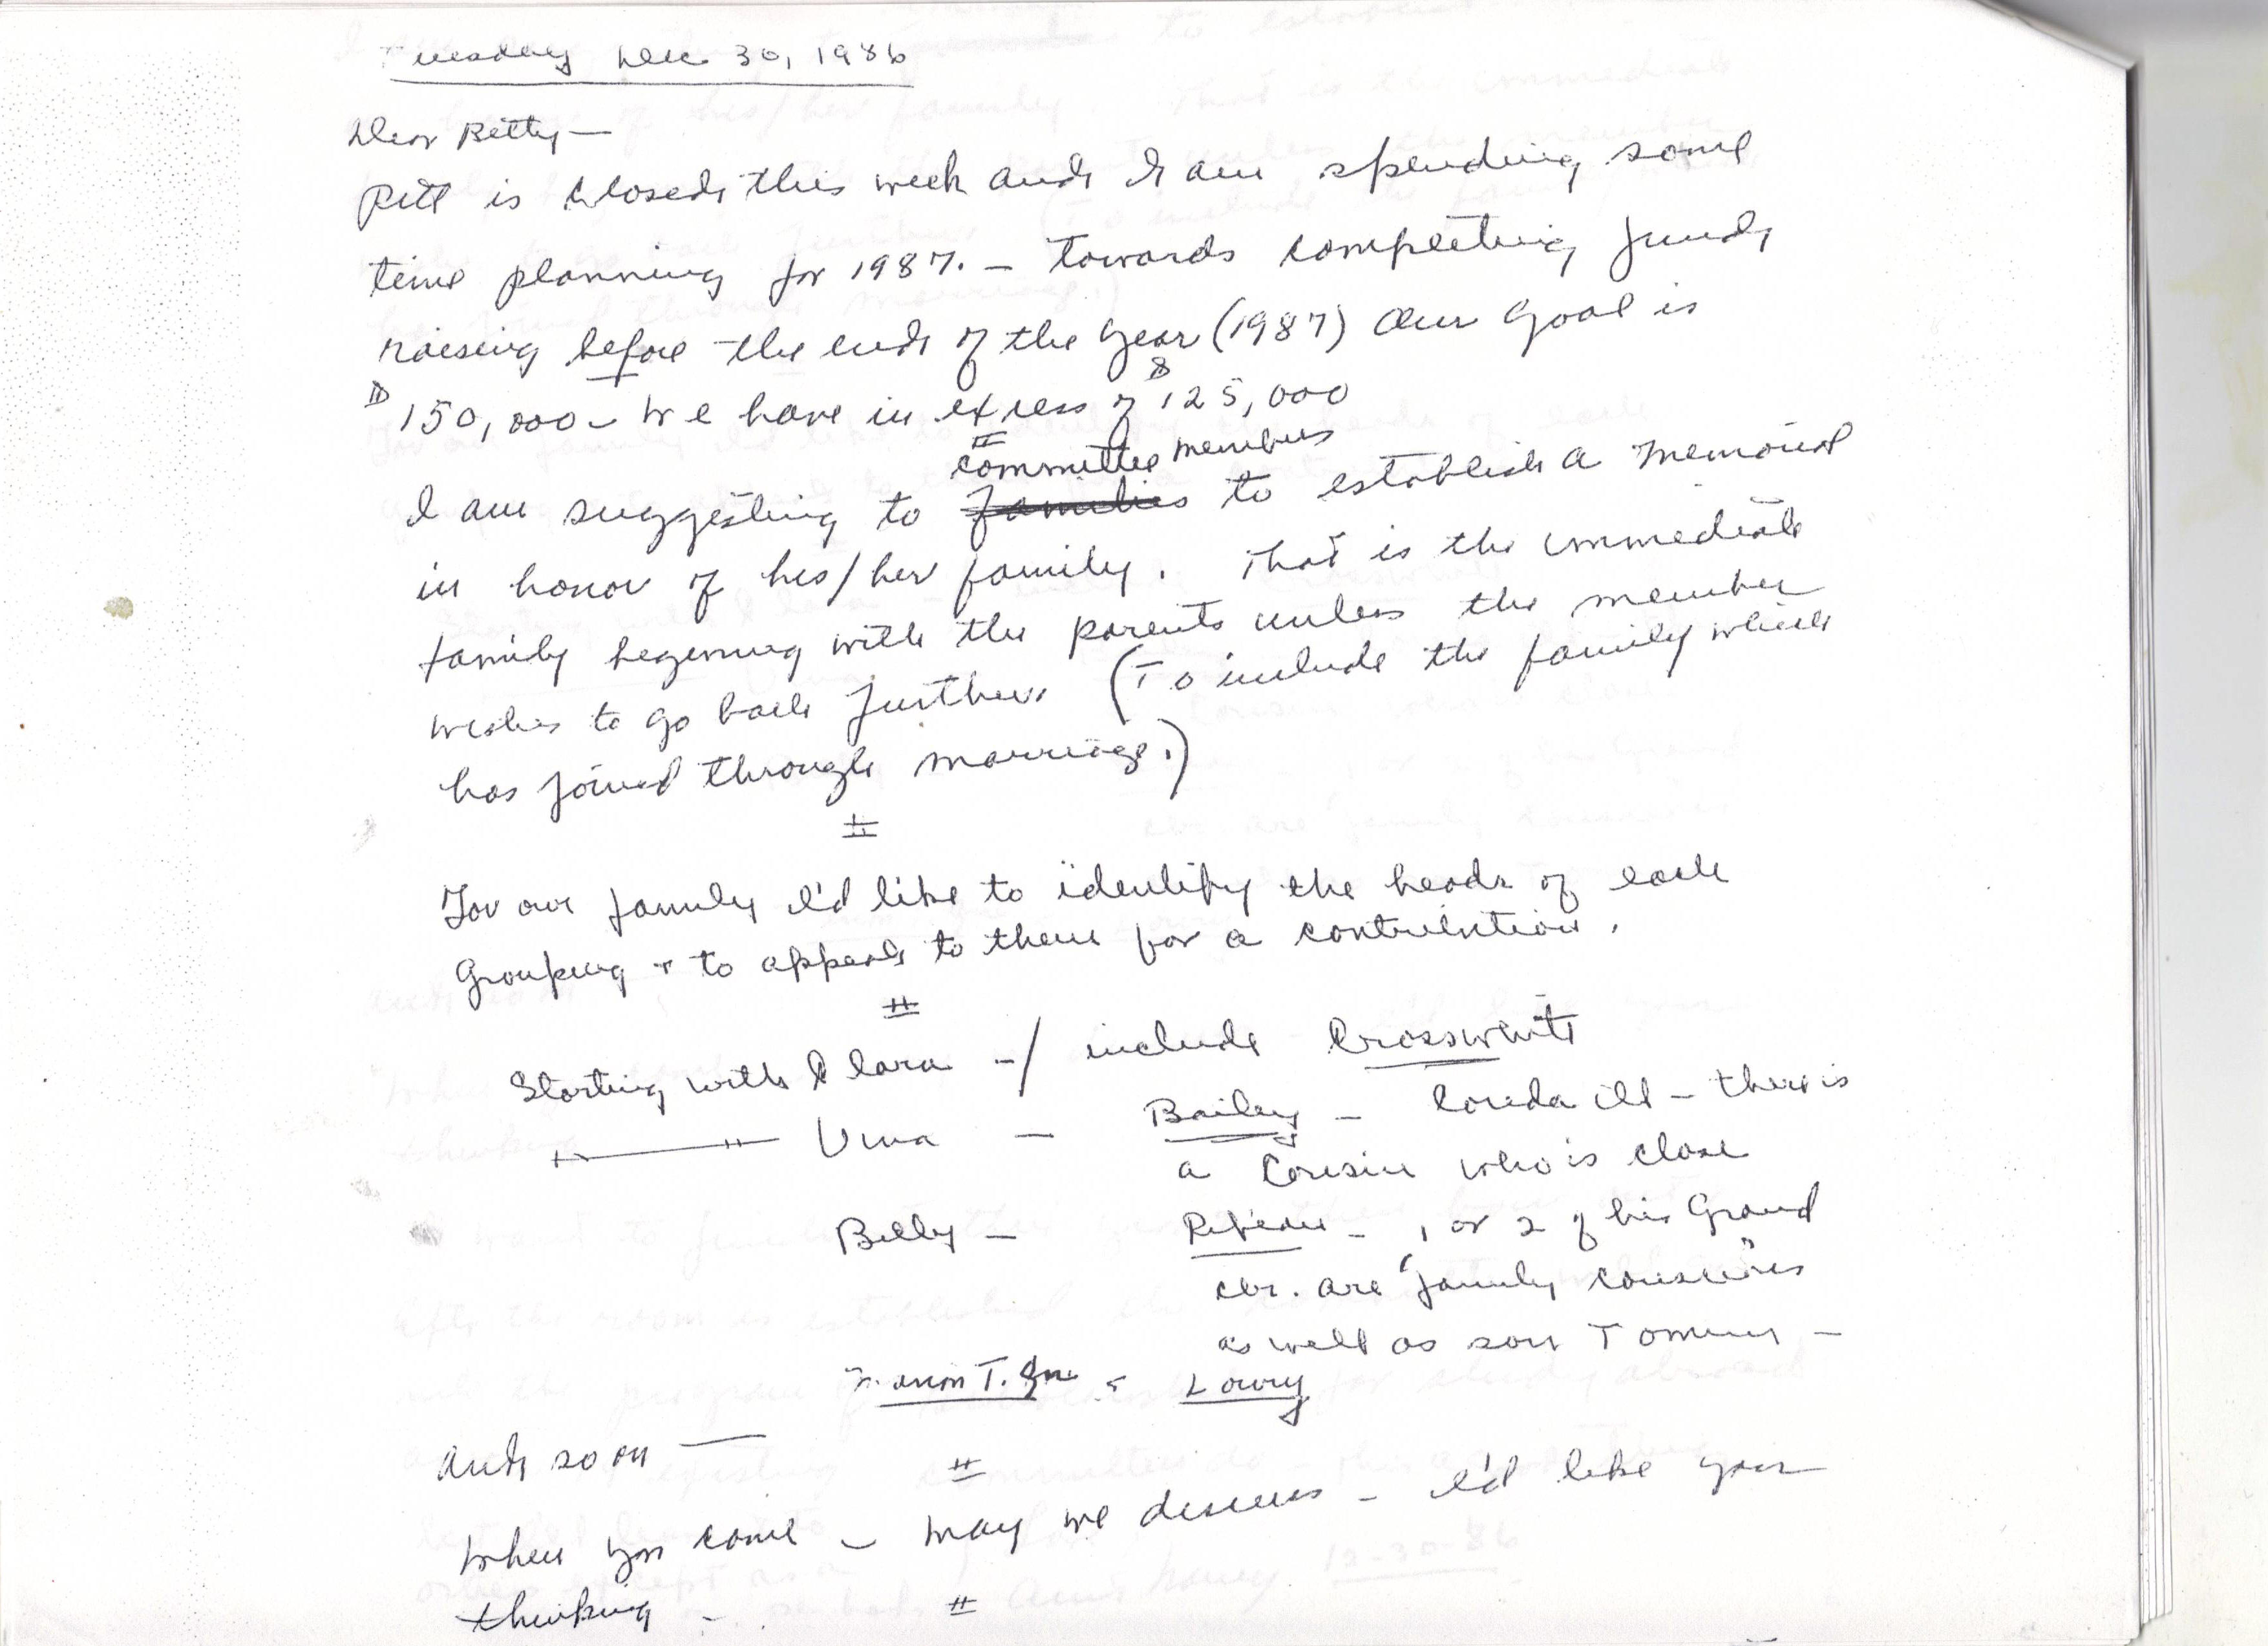 Tuesday Dec 30, 1986
Dear Betty—
Pitt is closed this week and I am spending some
time planning for 1987. — towards completing fund
raising before the end of the year (1987) Our Goal is
$150,000 – We have in exress of $125,000
committee members
I am suggesting to families to establish a memorial
in honor of his/her family. That is the immediate
family beginning with the parents unless the member
wishes to go back further. (To include the family which
has joined through marriage.)
#
For our family I'd like to identify the heads of each
Grouping + to appeal to them for a contribution.
#
Starting with Clara -/ include Crosswhite
Vina — Bailey – Loreda ill – there is
a Cousin who is close
Billy – – 1 or 2 of his Grand
chr. are "family conscious"
as well as son Tommy –
T. Jr. - Lowry
and so on —
#
When you come – may we discuss – I'd like your
thinking –
#